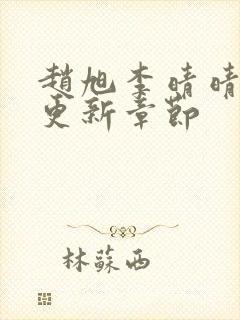 趙旭李晴晴
更新章節
林蘇西